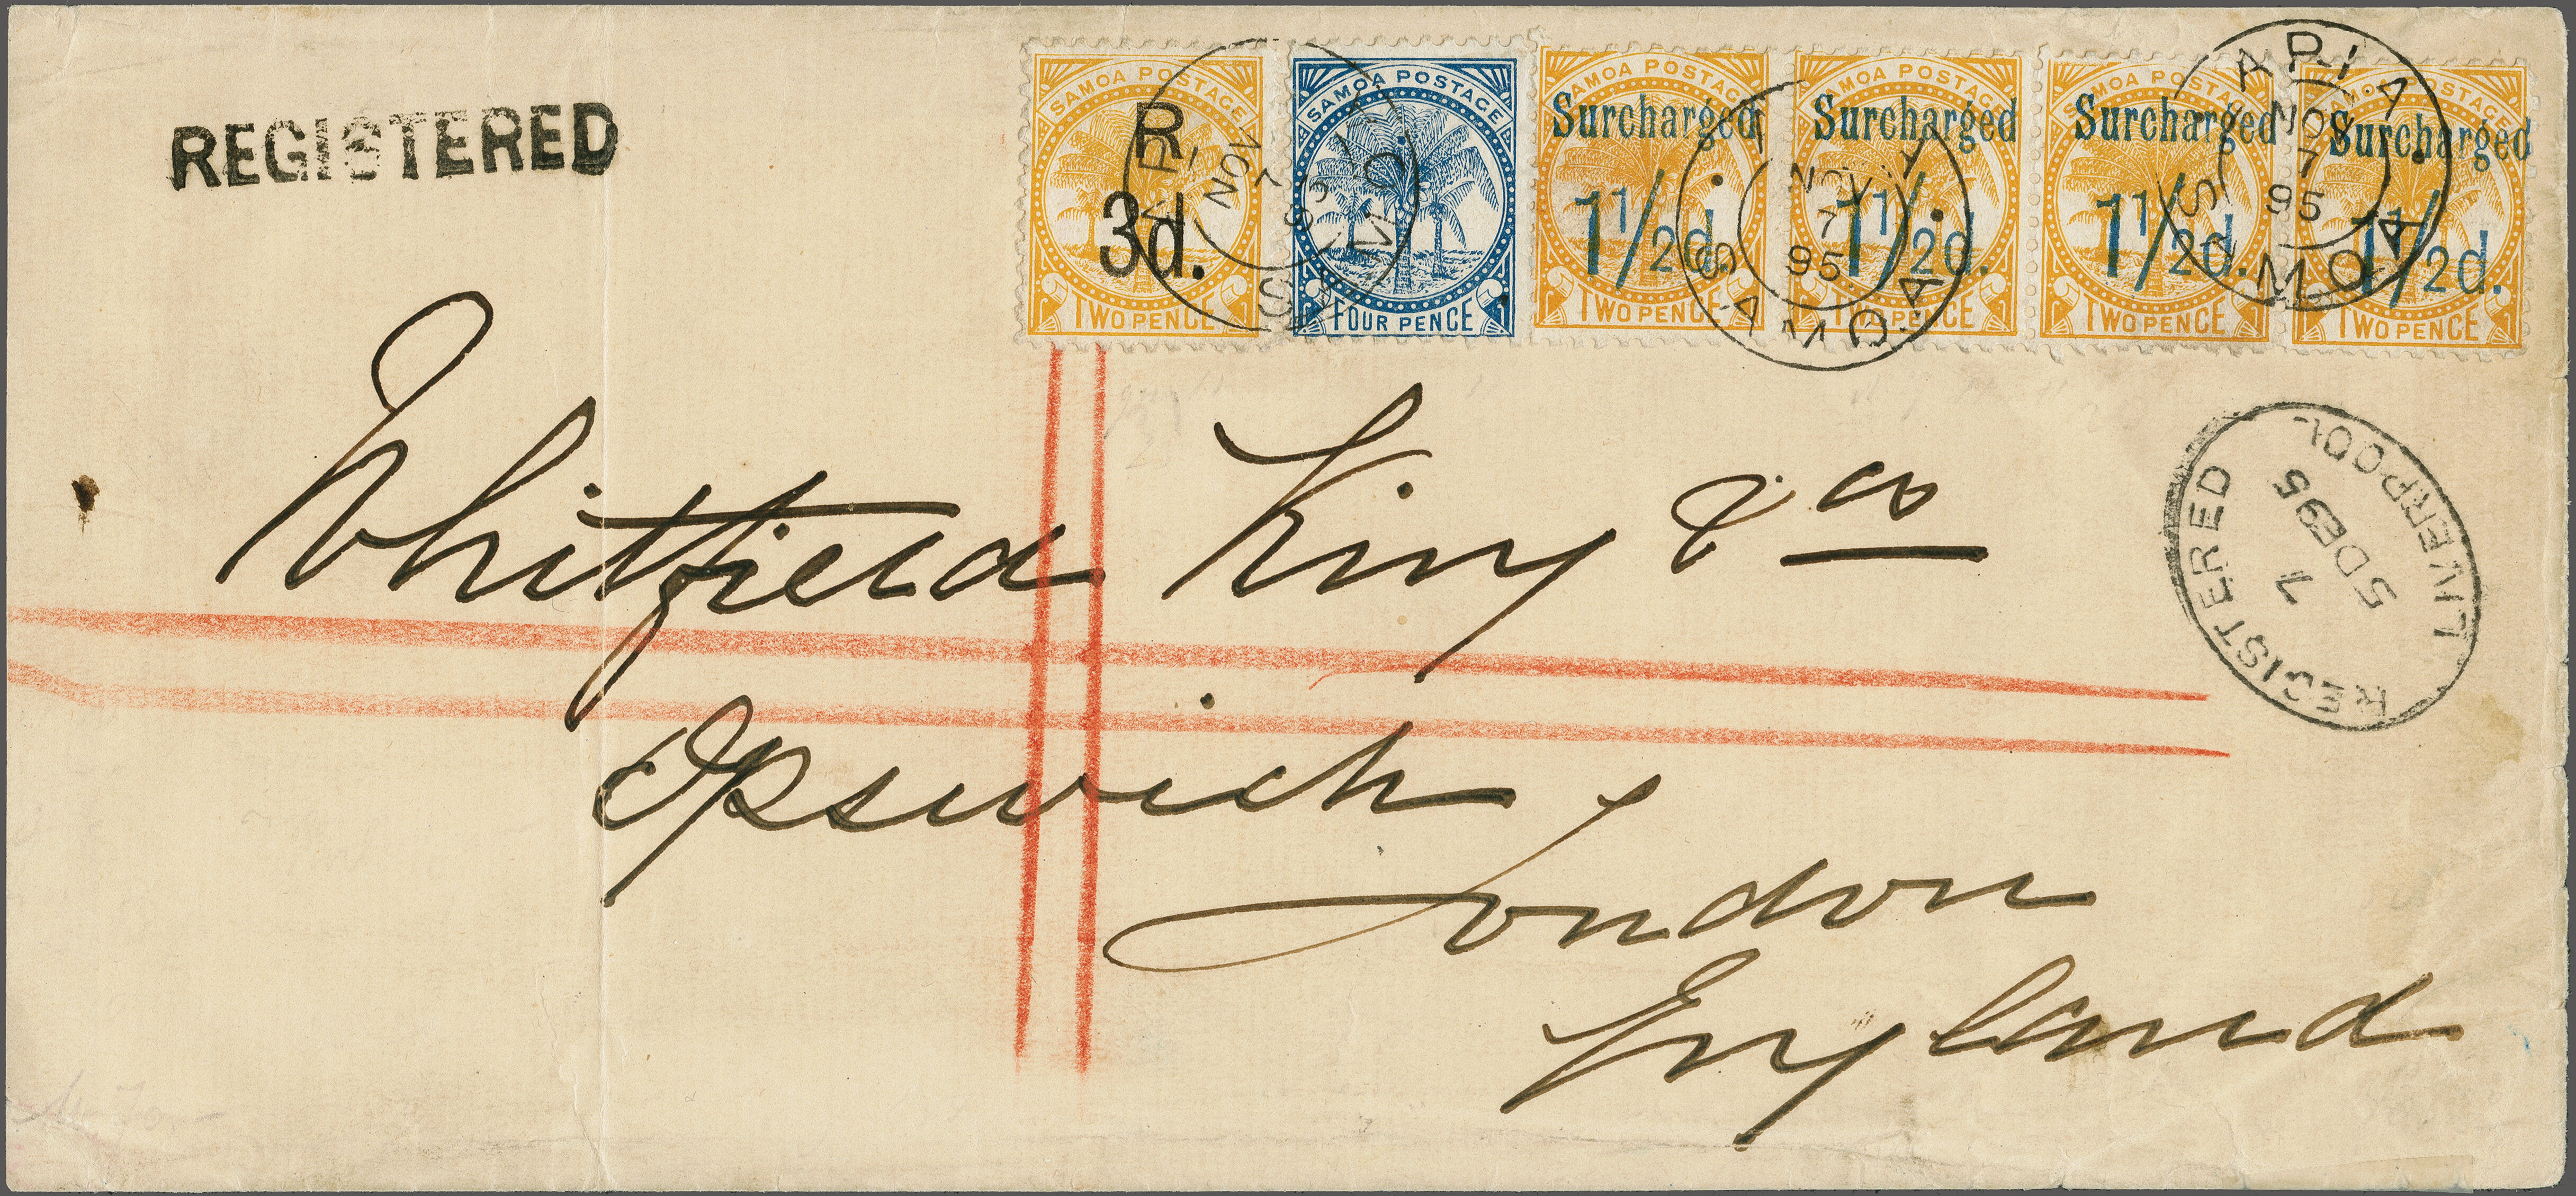 REGISTERED
SAMOA POSTAGE
R.
3d.
TWO PENCE
SAMOA POSTAGE
FOUR PENCE
SAMOA POSTAGE
Surcharged
1 1/2d.
TWO PENCE
SAMOA POSTAGE
Surcharged
1 1/2d.
TWO PENCE
SAMOA POSTAGE
Surcharged
1 1/2d.
TWO PENCE
SAMOA POSTAGE
Surcharged
1 1/2d.
TWO PENCE
APIA
NOV
7
95
SAMOA
APIA
NOV
7
95
SAMOA
APIA
NOV
7
95
SAMOA
Whitfield King & Co
Ipswich,
London
England
REGISTERED
7
5 DE 95
LIVERPOOL